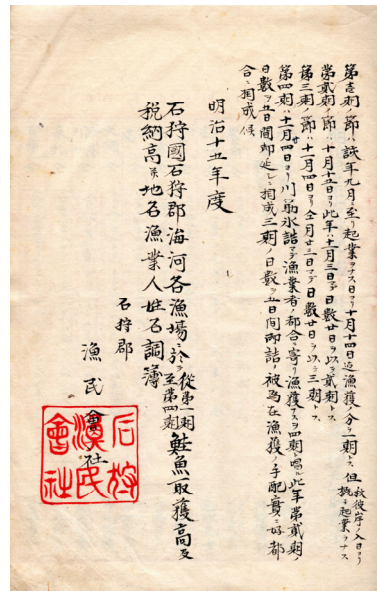 第壱期ノ節ハ該年九月ニ至リ起業ヲナス日ヨリ十月十四日迄漁獲ノ分ヲ一期トス 但秋彼岸ノ入日ヨリ概子起業ヲナス
第貳期ノ節ハ十月十五日ヨリ此年ハ十一月三日マデ日数廿日ヲ以テ貳期トス
第三期ノ節ハ十一月四日ヨリ仝月廿三日マデ日数廿日ヲ以テ三期トス
第四期ハ十一月廿四日ヨリ川筋氷詰マデ漁業者ノ都合ニ寄リ漁獲ヲナスヲ四期ト唱ル此年第貳期ノ
日数ヲ五日間即延シニ相成三期ノ日数ヲ五日間即詰ノ被為在漁獲ノ手配實ニ好都
合ニ相成候
明治十五年度
石狩國石狩郡海河各漁場ニ於テ從第一期至第四期鮭魚取獲高及
税納高并地名漁業人姓名調簿
石狩郡
漁民會社
石狩
漁民
會社